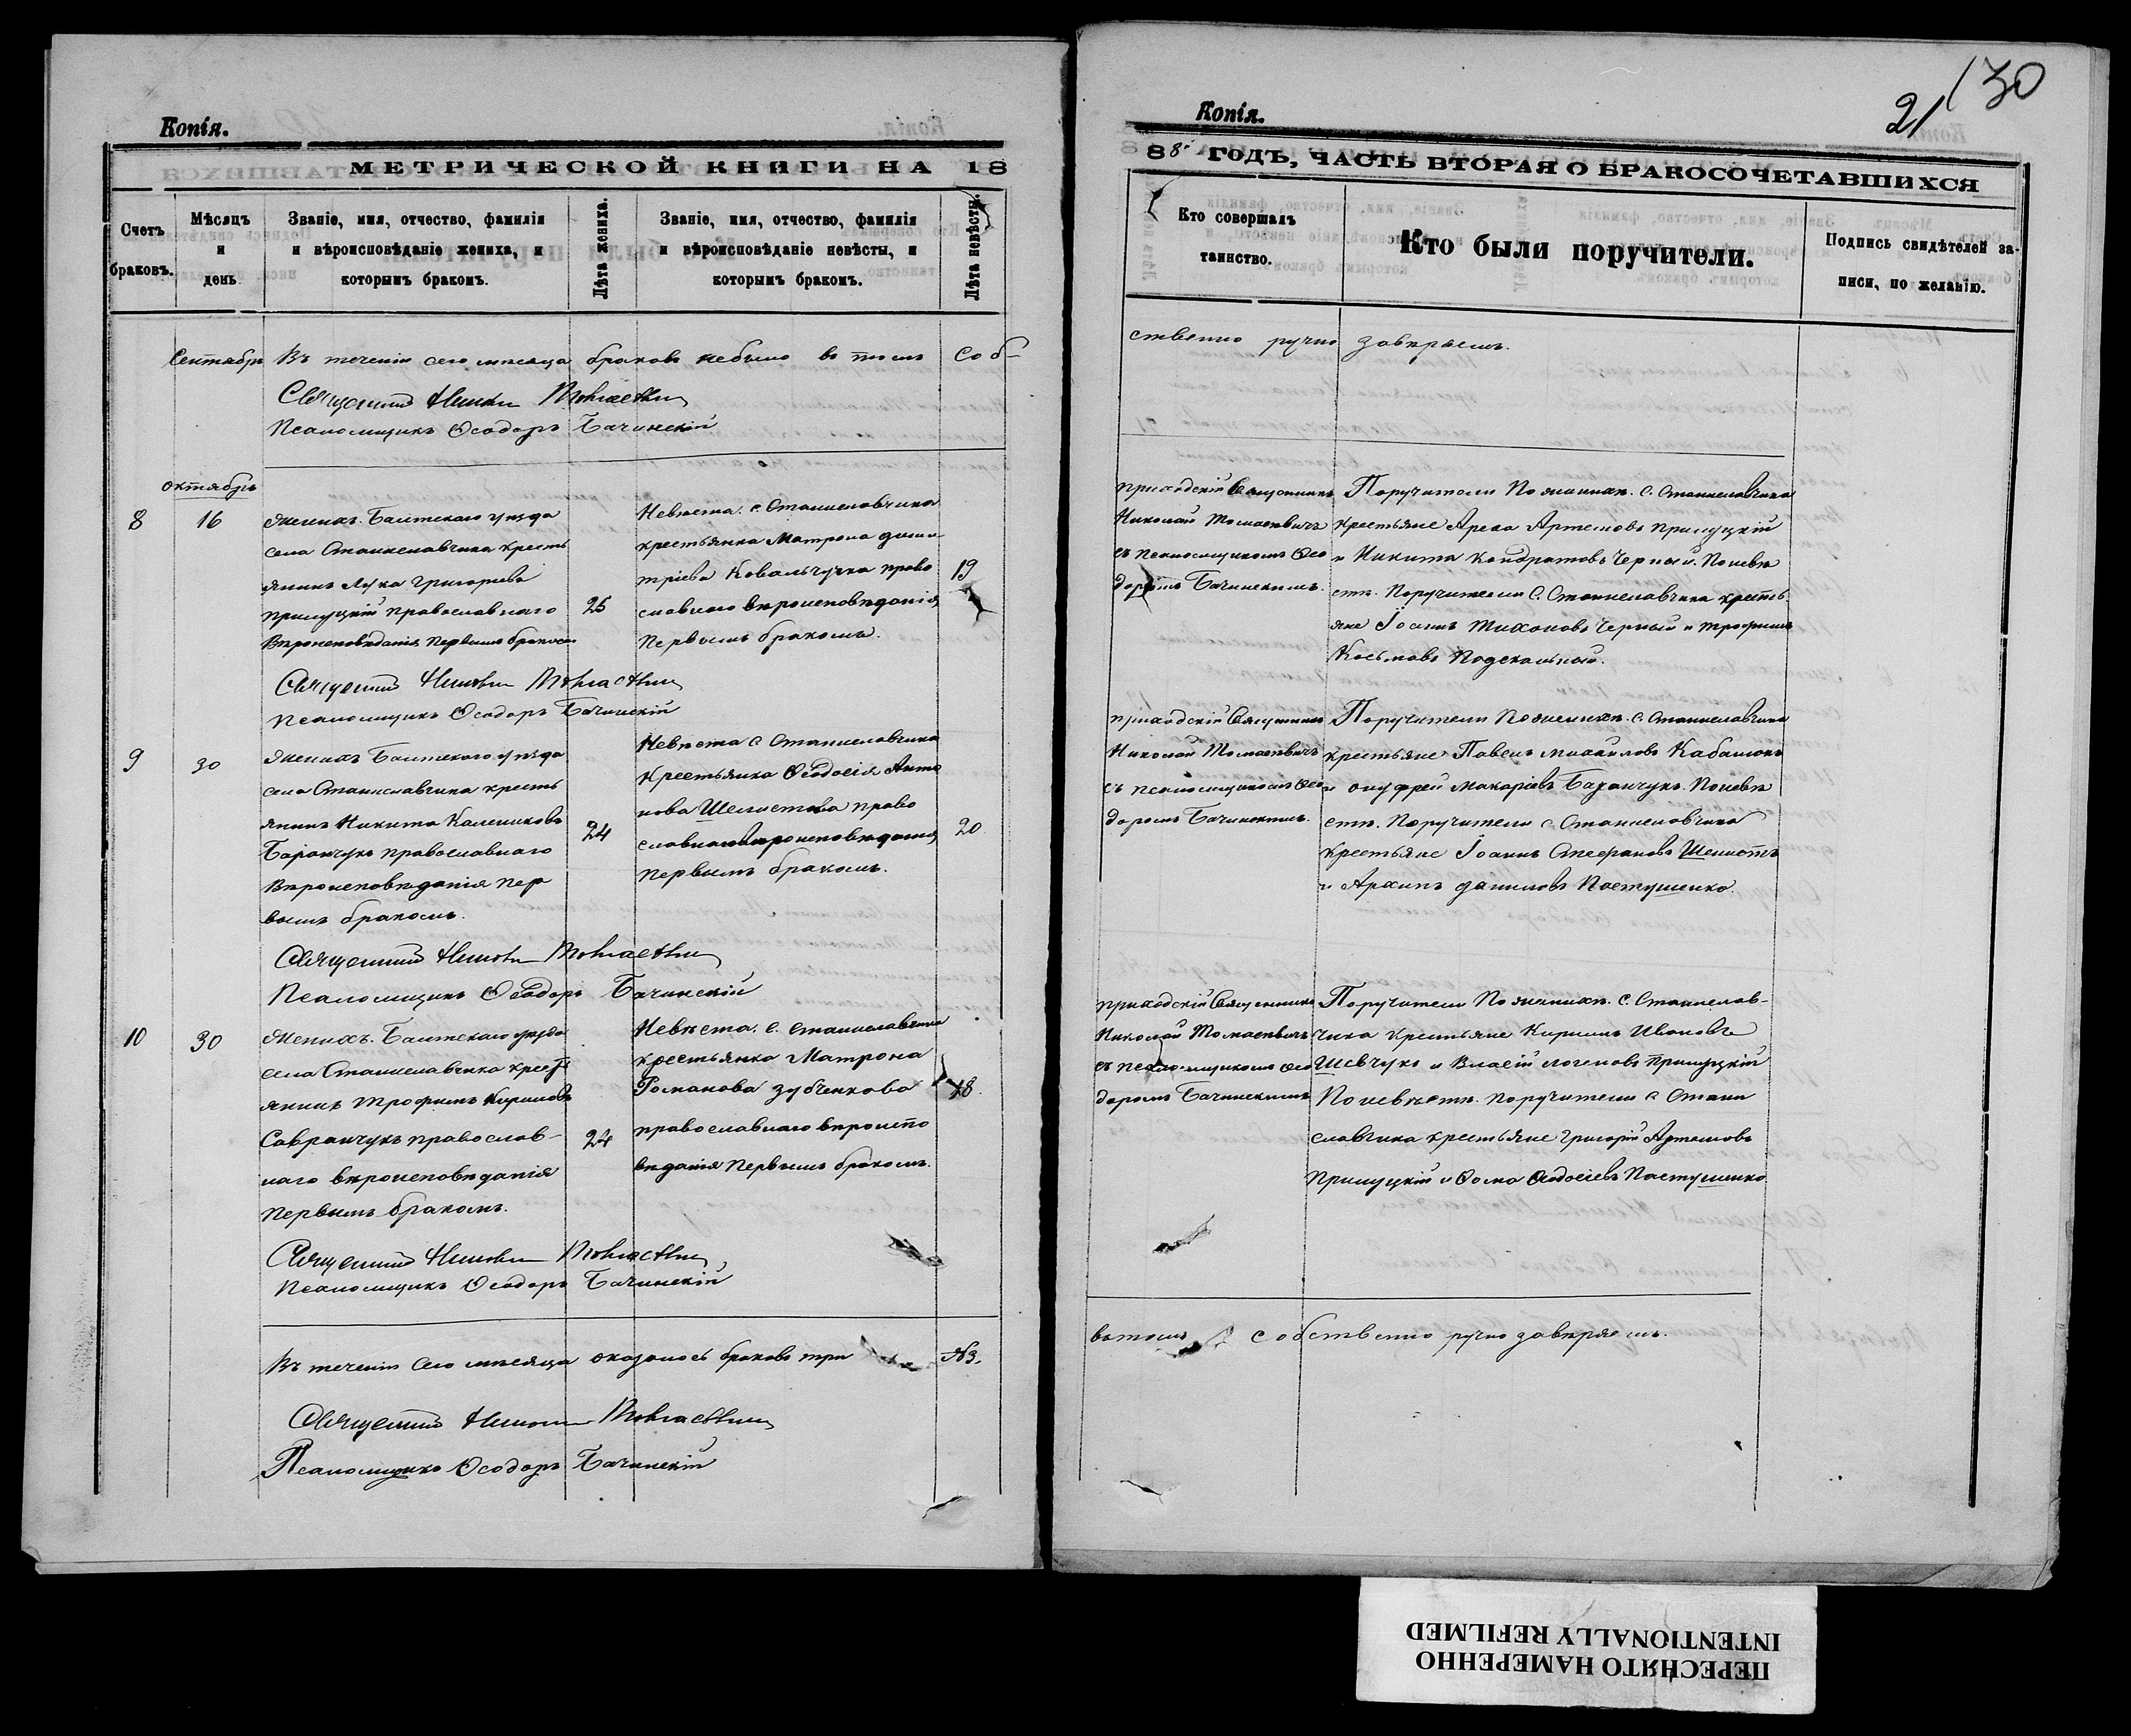 Копія.
МЕТРИЧЕСКОЙ КНИГИ НА 18
Счетъ браковъ.
Мѣсяцъ и день.
Званіе, имя, отчество, фамилія и вѣроисповѣданіе жениха, и которымъ бракомъ.
Лѣта жениха.
Званіе, имя, отчество, фамилія и вѣроисповѣданіе невѣсты, и которымъ бракомъ.
Лѣта невѣсты.
Сентябрь Въ теченіи сего мѣсяца браковъ небыло въ томъ соб-
Священникъ Николай
Псаломщикъ Ѳеодоръ Бачинскій
октябрь
8
16
Женихъ. Балтскаго уѣзда
села Станиславчика кресть
янинъ Лука Григорьевъ
Прилуцкій православнаго
Вѣроисповѣданія Первымъ бракомъ
Невѣста. с. Станиславчика
крестьянка Матрона дими
тріева Ковальчучка право
славнаго вѣроисповѣданія
Первымъ бракомъ.
19
Священникъ Николай
Псаломщикъ Ѳеодоръ Бачинскій
9
30
Женихъ Балтскаго уѣзда
села Станиславчика кресть
янинъ Никита Калениковъ
православнаго
Вѣроисповѣданія пер
вымъ бракомъ.
24
Невѣста с Станиславчика
Крестьянка Ѳеодосія Анто
нова Шелистова право
славнаго вѣроисповѣданія
первымъ бракомъ.
20
Священникъ Николай
Псаломщикъ Ѳеодоръ Бачинскій
10
30
Женихъ. Балтскаго уѣзда
села Станиславчика кресть
янинъ Трофимъ Кириловъ
Савранчукъ православ-
наго вѣроисповѣданія
Первымъ бракомъ.
24
Невѣста. с. Станиславчика
крестьянка Матрона
Романова Зубченкова
православнаго вѣроиспо
вѣданія Первымъ бракомъ.
18.
Священникъ Николай
Псаломщикъ Ѳеодоръ Бачинскій
Въ теченіи Сего мѣсяца оказалось браковъ три №3.
Священникъ Николай
Псаломщикъ Ѳеодоръ Бачинскій
21
130
Копія.
88 ГОДЪ, ЧАСТЬ ВТОРАЯ О БРАКОСОЧЕТАВШИХСЯ
Кто совершалъ таинство.
Кто были поручители.
Подпись свидѣтелей записи, по желанію.
ственно ручно завѣряемъ.
приходскій Священникъ
Николай
съ псаломщикомъ Ѳео
доромъ Бачинскимъ.
Поручители По женихѣ. с. Станиславчика
крестьяне Артемовъ Прилуцкій
и Никита Кондратовъ Черный. По невѣ
стѣ. Поручители С. Станиславчика кресть-
яне Іоаннъ Тихоновъ Черный и Трофимъ
Косьмовъ Подскальный.
приходскій Священникъ
Николай
съ псаломщикомъ Ѳео
доромъ Бачинскимъ.
Поручители По женихѣ. с. Станиславчика
крестьяне Павелъ Михайловъ Кабалюкъ
и онуфрей Макаріевъ По невѣ
стѣ. Поручители с Станиславчика
Крестьяне Іоаннъ Стефановъ Шелистъ
и Архипъ Даниловъ Пастушенко.
приходскій Священникъ
Николай
съ псаломщикомъ Ѳео
доромъ Бачинскимъ
Поручители По женихѣ. с. Станислав-
чика крестьяне Кирилъ Ивановъ
Шевчукъ и Власій Логеновъ Прилуцкій
По невѣстѣ. поручители с Стани
славчика крестьяне Григорій Артемовъ
Прилуцкій и Ѳома Ѳеодосіевъ Пастушенко
вътомъ собственно ручно завѣряемъ.
ПЕРЕСНЯТО НАМЕРЕННО
INTENTIONALLY REFILMED